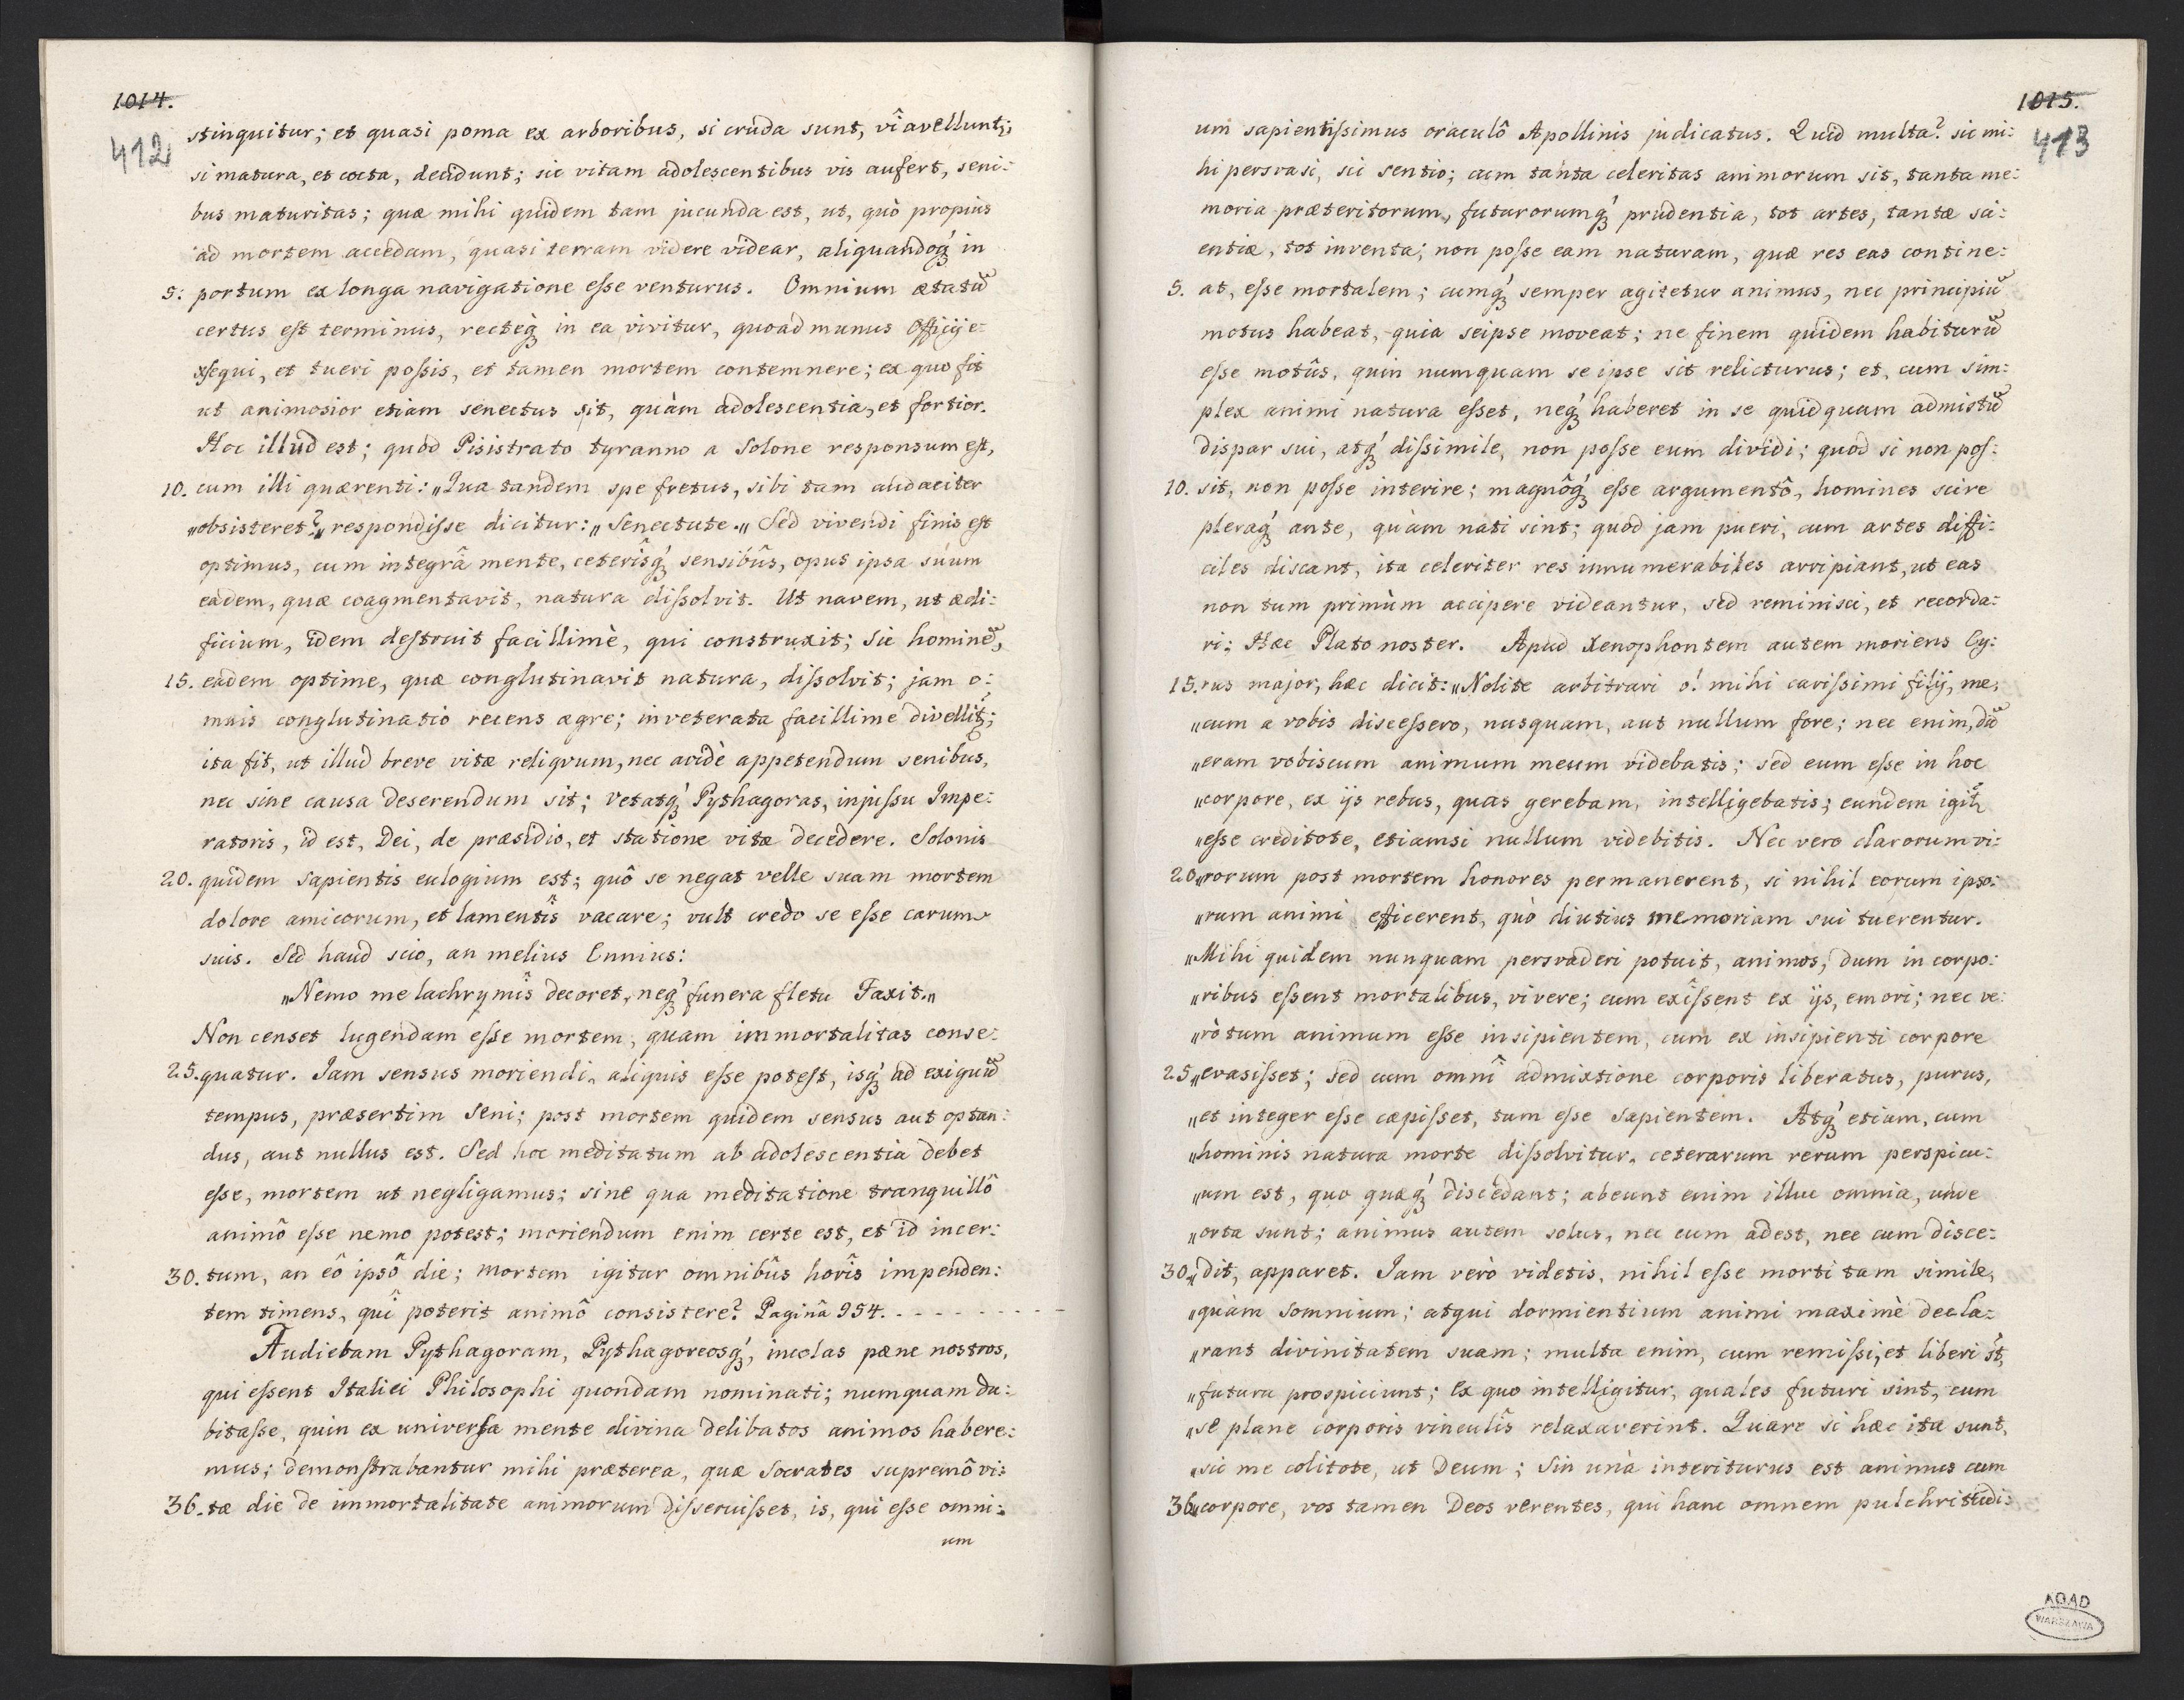 1014.
412
stinguitur; et quasi poma ex arboribus, si cruda sunt, vî avellunt₂;
si matura, et cocta, decidunt; sic vitam adolescentibus vis aufert, seni:
bus maturitas; quæ mihi quidem tam jucunda est, ut, quò propius
ad mortem accedam, quasi terram videre videar, aliquandoq́ in
5. portum ex longa navigatione eſse venturus. Omnium ætatũ
certus eſt terminus, recteq́ in ea vivitur, quoad munus Officÿ e:
xſequi, et tueri poſsis, et tamen mortem contemnere; ex quo fit
ut animosior etiam senectus sit, quàm adolescentia, et fortior.
Hoc illud est; quod Pisistrato tyranno a Solone responsum eſt,
10. cum illi quærenti: „Qua tandem spe fretus, sibi tam audaciter
„obsisteret?„ respondiſse dicitur: „Senectute.„ Sed vivendi finis eſt
optimus, cum integrâ mente, ceterîsq́ sensibûs, opus ipsa suum
eadem, quæ coagmentavit, natura diſsolvit. Ut navem, ut ædi:
ficium, idem deſtruit facillimè, qui construxit; sic hominẽ,
15. eadem optime, quæ conglutinavit natura, diſsolvit; jam o:
mnis conglutinatio recens ægre; inveterata facillime divellit₂;
ita fit, ut illud breve vitæ reliqvum, nec avidè appetendum senibus,
nec sine causa deserendum sit; vetatq́ Pythagoras, injuſsu Impe:
ratoris, id est, Dei, de præsidio, et statione vitæ decedere. Solonis
20. quidem sapientis eulogium est; quô se negat velle suam mortem
dolore amicorum, et lamentîs vacare; vult credo se eſse carum
suis. Sed haud scio, an melius Ennius:
„Nemo me lachrymîs decoret, neq́ funera fletu Faxit.„
Non censet lugendam eſse mortem, quam immortalitas conse:
25. quatur. Jam sensus moriendi, aliquis eſse poteſt, isq́ ad exiguũ
tempus, præsertim seni; post mortem quidem sensus aut optan:
dus, aut nullus est. Sed hoc meditatum ab adolescentià debet
eſse, mortem ut negligamus; sine qua meditatione tranquillô
animô eſse nemo potest; moriendum enim certe est, et id incer:
30. tum, an eô ipsô die; mortem igitur omnibûs horîs impenden:
tem timens, quî poterit animô consistere? Paginâ 954. - - - - - - - - -
Audiebam Pythagoram, Pythagoreosq́, incolas pæne nostros,
qui eſsent Italici Philosophi quondam nominati; numquam du:
bitaſse, quin ex universa mente divina delibatos animos habere:
mus; demonſtrabantur mihi præterea, quæ Socrates supremô vi:
36. tæ die de immortalitate animorum diſseruiſset, is, qui eſse omni:
um
1015.
413
um sapientiſsimus oraculô Apollinis judicatus. Quid multa? sic mi:
hi persvasi, sic sentio; cum tanta celeritas animorum sit, tanta me:
moria præteritorum, futurorumq́ prudentia, tot artes, tantæ sci:
entiæ, tot inventa; non poſse eam naturam, quæ res eas contine:
5. at, eſse mortalem; cumq́ semper agitetur animus, nec principiũ
motus habeat, quia seipse moveat; ne finem quidem habiturũ
eſse motûs, quin numquam se ipse sit relicturus; et, cum sim:
plex animi natura eſset, neq́ haberet in se quidquam admistũ
dispar sui, atq́ diſsimile, non poſse eum dividi; quod si non poſ:
10. sit, non poſse interire; magnôq́ eſse argumentô, homines scire
pleraq́ ante, quàm nati sint; quod jam pueri, cum artes diffi:
ciles discant, ita celeriter res innumerabiles arripiant, ut eas
non tum primùm accipere videantur, sed reminisci, et recorda:
ri: Hæc Plato noster. Apud Xenophontem autem moriens Cy:
15. rus major, hæc dicit: „Nolite arbitrari o! mihi cariſsimi filÿ, me,
„cum a vobis disceſsero, nusquam, aut nullum fore; nec enim, dũ
„eram vobiscum animum meum videbatis; sed eum eſse in hoc
„corpore, ex ÿs rebus, quas gerebam, intelligebatis; eundem igit₂
„eſse creditote, etiamsi nullum videbitis. Nec vero clarorum vi:
20. „rorum post mortem honores permanerent, si nihil eorum ipso:
„rum animi efficerent, quò diutius memoriam sui tuerentur.
„Mihi quidem nunquam persvaderi potuit, animos, dum in corpo:
„ribus eſsent mortalibus, vivere; cum exiſsent ex ÿs, emori; nec ve:
„rò tum animum eſse insipientem, cum ex insipienti corpore
25. „evasiſset; sed cum omnî admixtione corporis liberatus, purus,
„et integer eſse cæpiſset, tum eſse sapientem. Atq́ etiam, cum
„hominis natura morte diſsolvitur, ceterarum rerum perspicu:
„um est, quo quæq́ discedant; abeunt enim illuc omnia, unde
„orta sunt; animus autem solus, nec cum adest, nec cum disce:
30. „dit, apparet. Jam verò videtis, nihil eſse morti tam simile,
„quàm somnium; atqui dormientium animi maximè decla:
„rant divinitatem suam; multa enim, cum remiſsi, et liberi st̃,
„futura prospiciunt; ex quo intelligitur, quales futuri sint, cum
„se plane corporis vinculîs relaxaverint. Quare si hæc ita sunt,
„sic me colitote, ut Deum; sin unà interiturus est animus cum
36. „corpore, vos tamen Deos verentes, qui hanc omnem pulchritudi:
AGAD
WARSZAWA